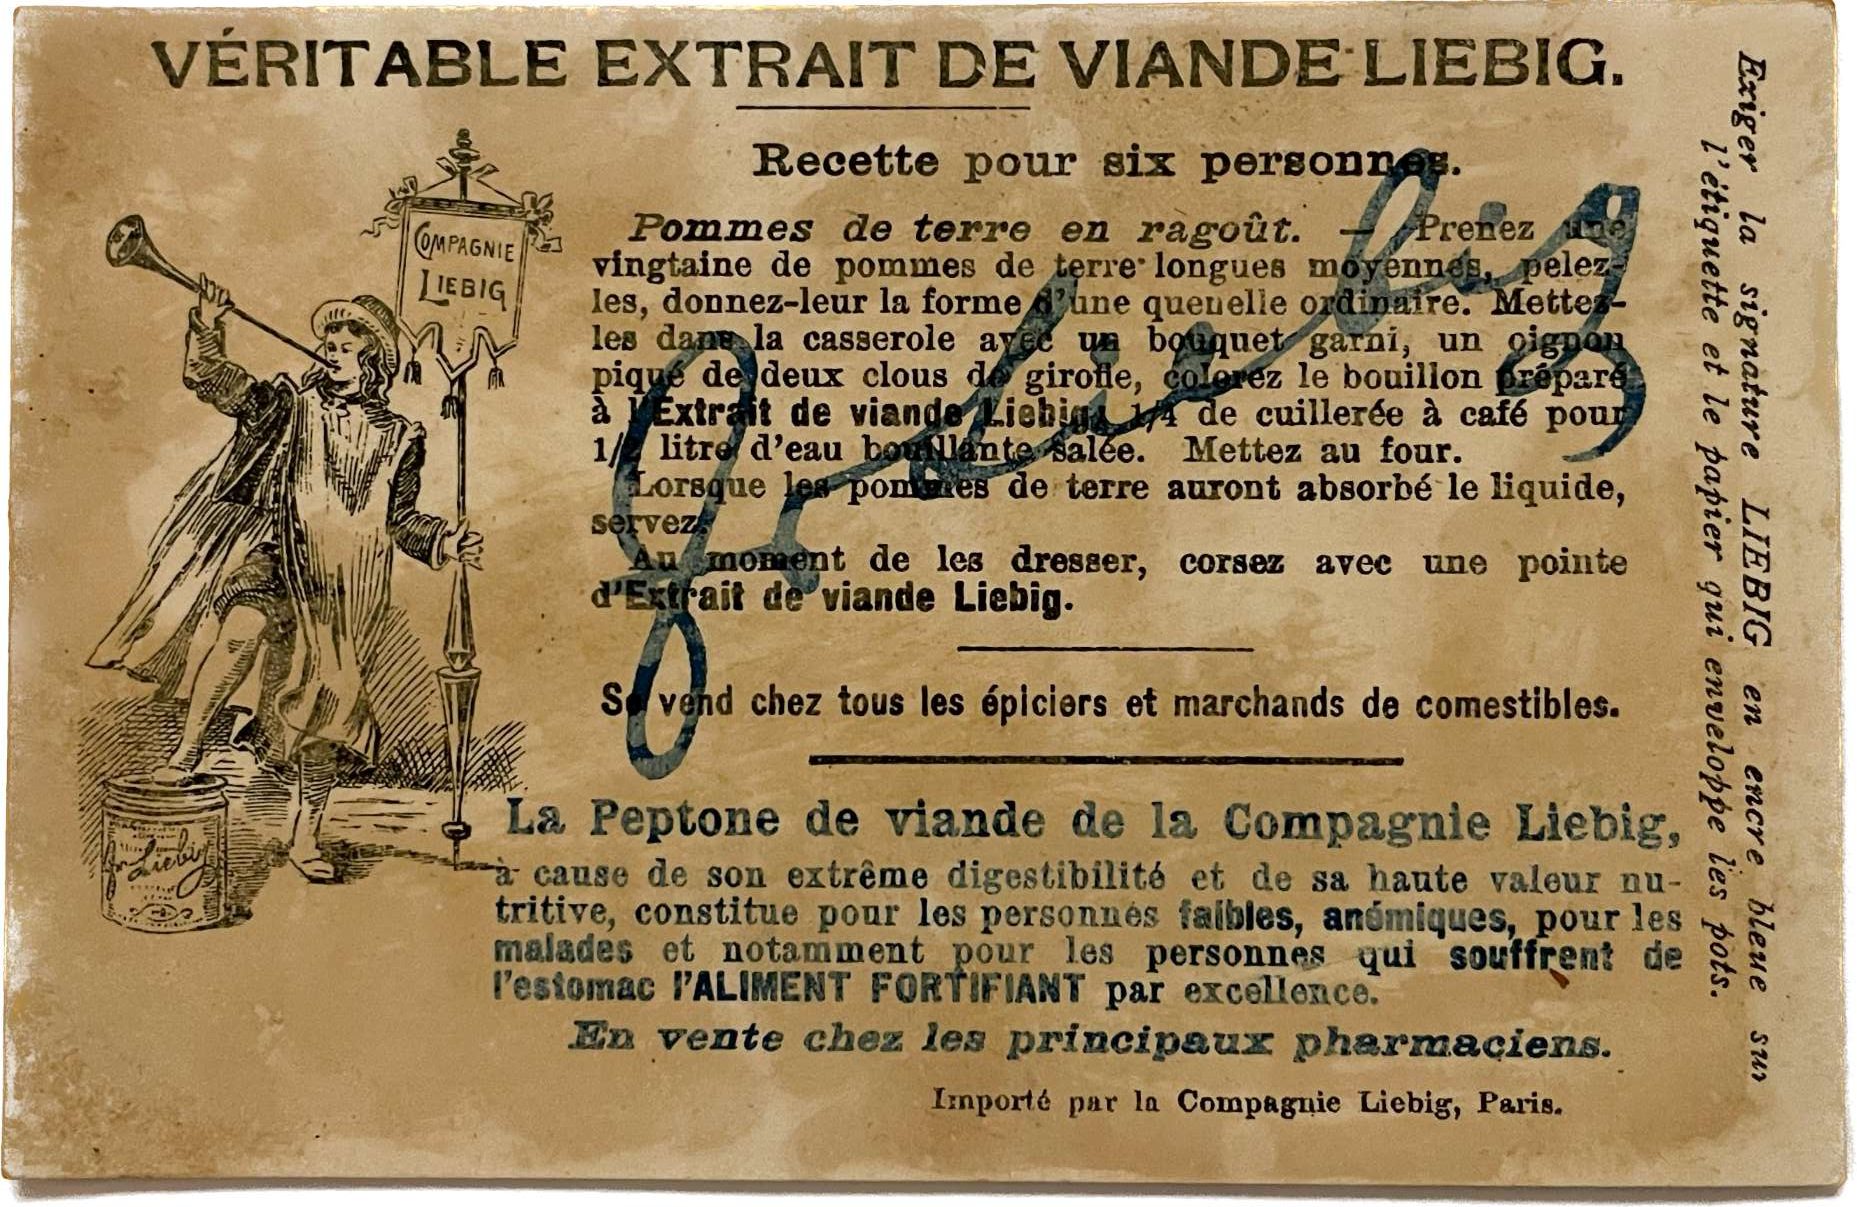 VÉRITABLE EXTRAIT DE VIANDE LIEBIG.
COMPAGNIE
LIEBIG
Recette pour six personnes.
Pommes de terre en ragoût. — Prenez une
vingtaine de pommes de terre longues moyennes, pelez-
les, donnez-leur la forme d'une quenelle ordinaire. Mettez-
les dans la casserole avec un bouquet garni, un oignon
piqué de deux clous de girofle, colorez le bouillon préparé
à l'Extrait de viande Liebig, 1/4 de cuillerée à café pour
1/2 litre d'eau bouillante salée. Mettez au four.
Lorsque les pommes de terre auront absorbé le liquide,
servez.
Au moment de les dresser, corsez avec une pointe
d'Extrait de viande Liebig.
J. v. Liebig
Se vend chez tous les épiciers et marchands de comestibles.
J. v. Liebig
La Peptone de viande de la Compagnie Liebig,
à cause de son extrême digestibilité et de sa haute valeur nu-
tritive, constitue pour les personnes faibles, anémiques, pour les
malades et notamment pour les personnes qui souffrent de
l'estomac l'ALIMENT FORTIFIANT par excellence.
En vente chez les principaux pharmaciens.
Importé par la Compagnie Liebig, Paris.
Exiger la signature LIEBIG en encre bleue sur
l'étiquette et le papier qui enveloppe les pots.